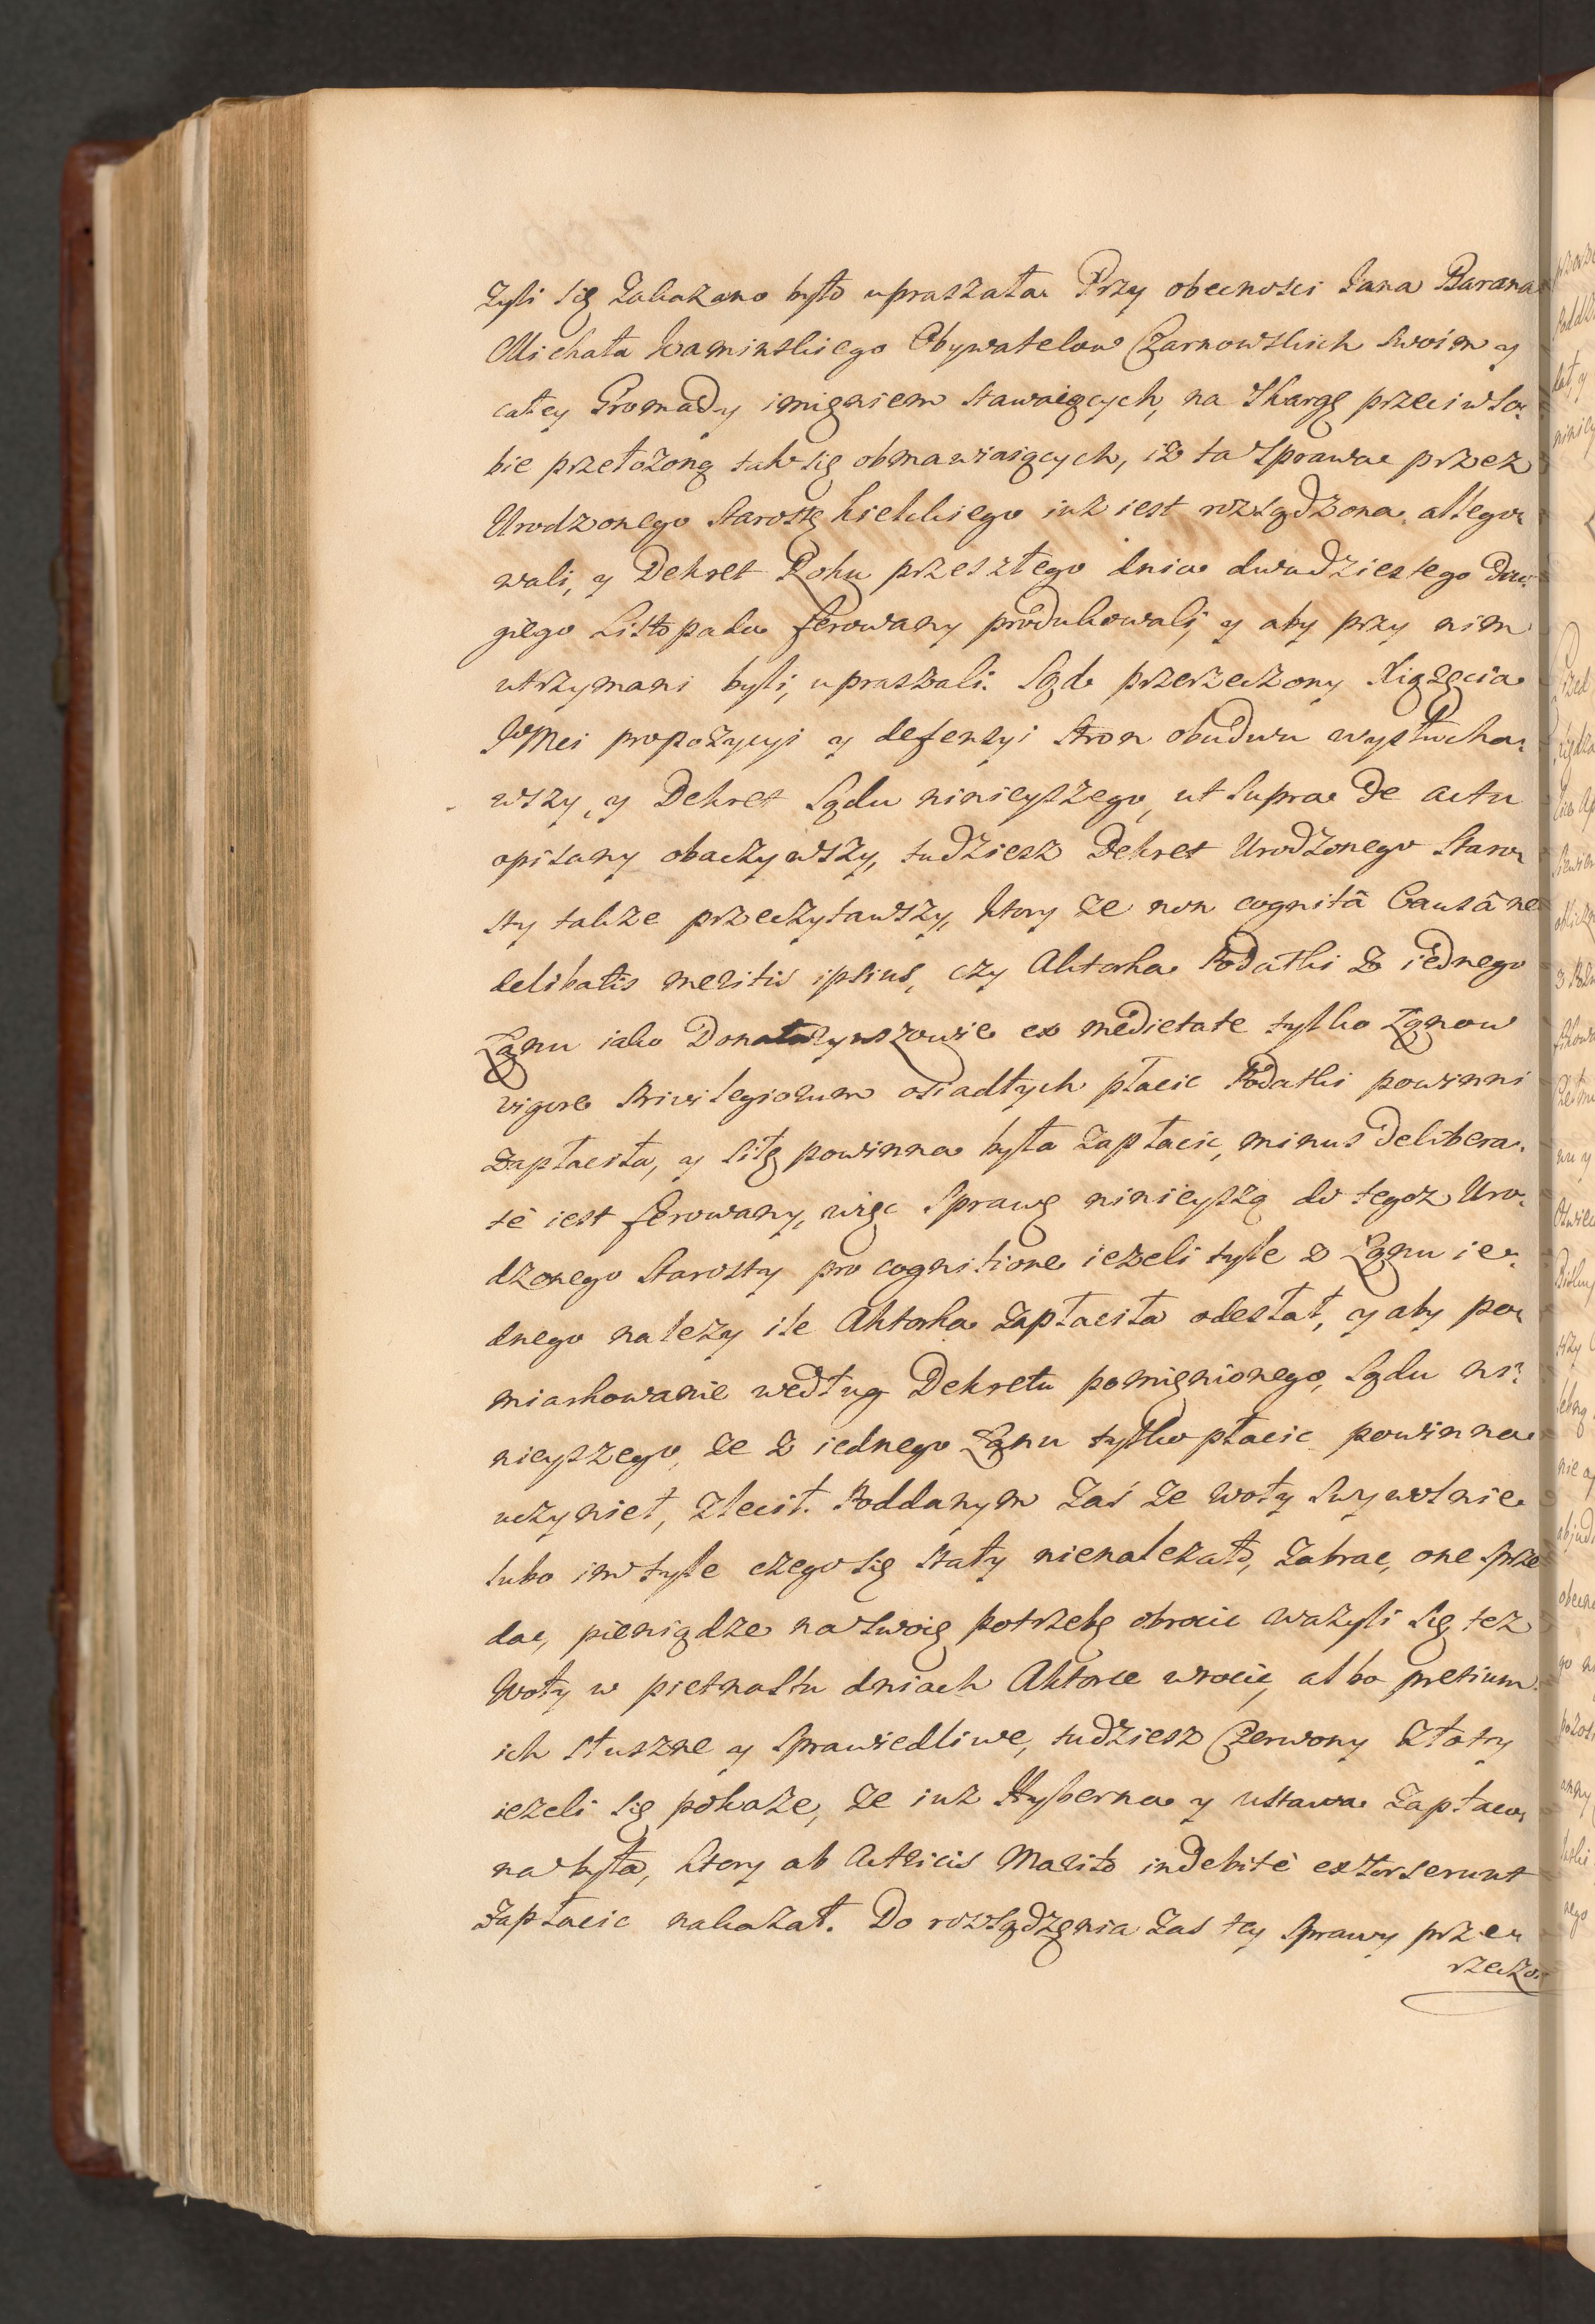 żyli się zakazano było upraszała. Przy obecności Jana Barana
Michała Kaminskiego Obywatelow Czarnowskich swoim y
całey Gromady imięniem stawaiących, na skargę przeciw so-
bie przełożoną tak się obmawiaiących, iż ta sprawa przez
Urodzonego Starostę Kielckiego iuż iest rozsądzona allego-
wali, y Dekret Roku przeszłego dnia dwudziestego dru-
giego Listopada ferowany produkowali, y aby przy nim
utrzymani byli, upraszali. Sąd przerzeczony Xiążęcia
JoMci propozycyi y defensyi stron obudwu wysłucha-
wszy, y Dekret Sądu ninieyszego, ut supra de actu
opisany obaczywszy, tudziesz Dekret Urodzonego Staro-
sty także przeczytawszy, ktory że non cognitâ Causâ ne
delibatis meritis ipsius, czy Aktorka Podatki z iednego
Łanu iako Donataryuszowie ex medietate tylko Łanow
vigore Privilegiorum osiadłych płacic Podatki powinni
zapłaciła, y siłę powinna była zapłacic, minus delibera-
tè iest ferowany, więc sprawę ninieyszą do tegoż Uro-
dzonego Starosty pro cognitione ieżeli tyle z Łanu ie-
dnego należy ile Aktorka zapłaciła odesłał, y aby po-
miarkowanie według Dekretu pomięnionego, Sądu ni-
nieyszego, że z iednego Łanu tylko płacic powinna
uczynieł, zlecił. Poddanym zaś że woły swywolnie
lubo im tyle czego się stały nienależało, zabrac, one prze
dac, pieniądze na swoię potrzebę obrocic ważyli się, też
Woły w pietnastu dniach Aktorce wrocic, albo pretium
ich słuszne y sprawiedliwe, tudziesz Czerwony Złoty
ieżeli się pokaże, że iuż Hyberna y ustawa zapłaco-
na była, ktory ab Actricis Marito indebitè extorserunt
zapłacic nakazał. Do rozsądzęnia zas tey sprawy prze-
rzeczo-